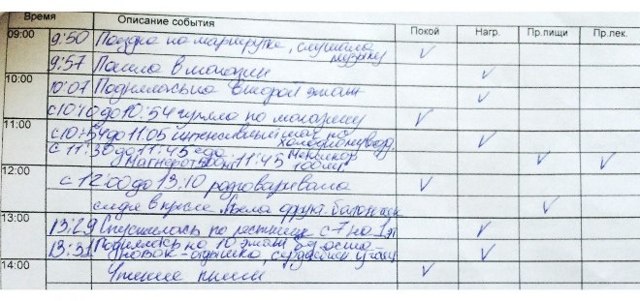 Время Описание события Покой Нагр. Пр.пищи Пр.лек.
09:00
9:50 Поездка на маршрутке, слушала музыку
9:57 Пошла в магазин
10:00
10:07 Поднималась на второй этаж
с 10:10 до 10:54 гуляла по магазину
11:00
с 10:54 до 11:05 интенсивный шаг по
с 11:30 до 11:45 еда
11:45
12:00
с 12:00 до 13:10 разговаривала
сидя в кресле. Ела фрукт. батончик
13:00
13:29 Спустилась по лестнице с 7 на 1 эт
13:31 Поднялась на 10 этаж без оста-
новок - отдышка,
14:00
Чтение книги